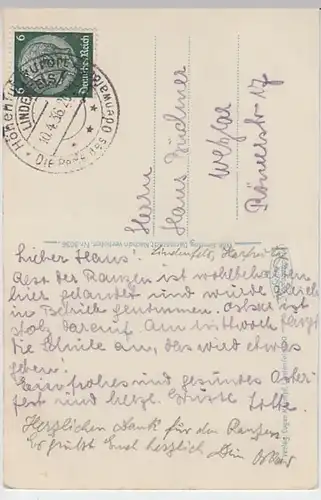 6
6
Deutsches Reich
Höhenluftkurort
LINDENFELS
10.4.36
Die Perle des Odenwaldes
Herrn
Hans Büchner
Wetzlar
Römerstr. 17
Lieber Hans!
Lindenfels,
Also der Ranzen ist wohlbehalten
hier gelandet und wurde gleich
in Betrieb genommen. Oskar ist
stolz darauf. Am Mittwoch fängt
die Schule an, das wird etwas
geben!
Euch frohes und gesundes Oster-
fest und herzl. Grüsse Lotte.
Herzlichen Dank für den Ranzen.
Es grüßt Euch herzlich Dein Oskar